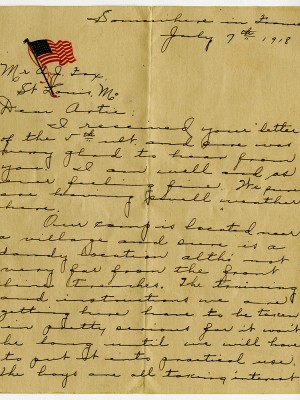 Somewhere in France
July 7th 1918
Mr A. J. Fox,
St Louis, Mo.
Dear Artie:
I received your letter
of the 5th ult. and sure was
very glad to hear from
you. I am well and at
feeling fine. We
are having swell weather
here.
Our camp is located near
a village and sure is a
dandy location altho not
very far from the front
line trenches. The training
and instructions we are
getting here have to be taken
in pretty serious for it won't
be long until we will have
to put it into practical use.
The boys are all taking interest